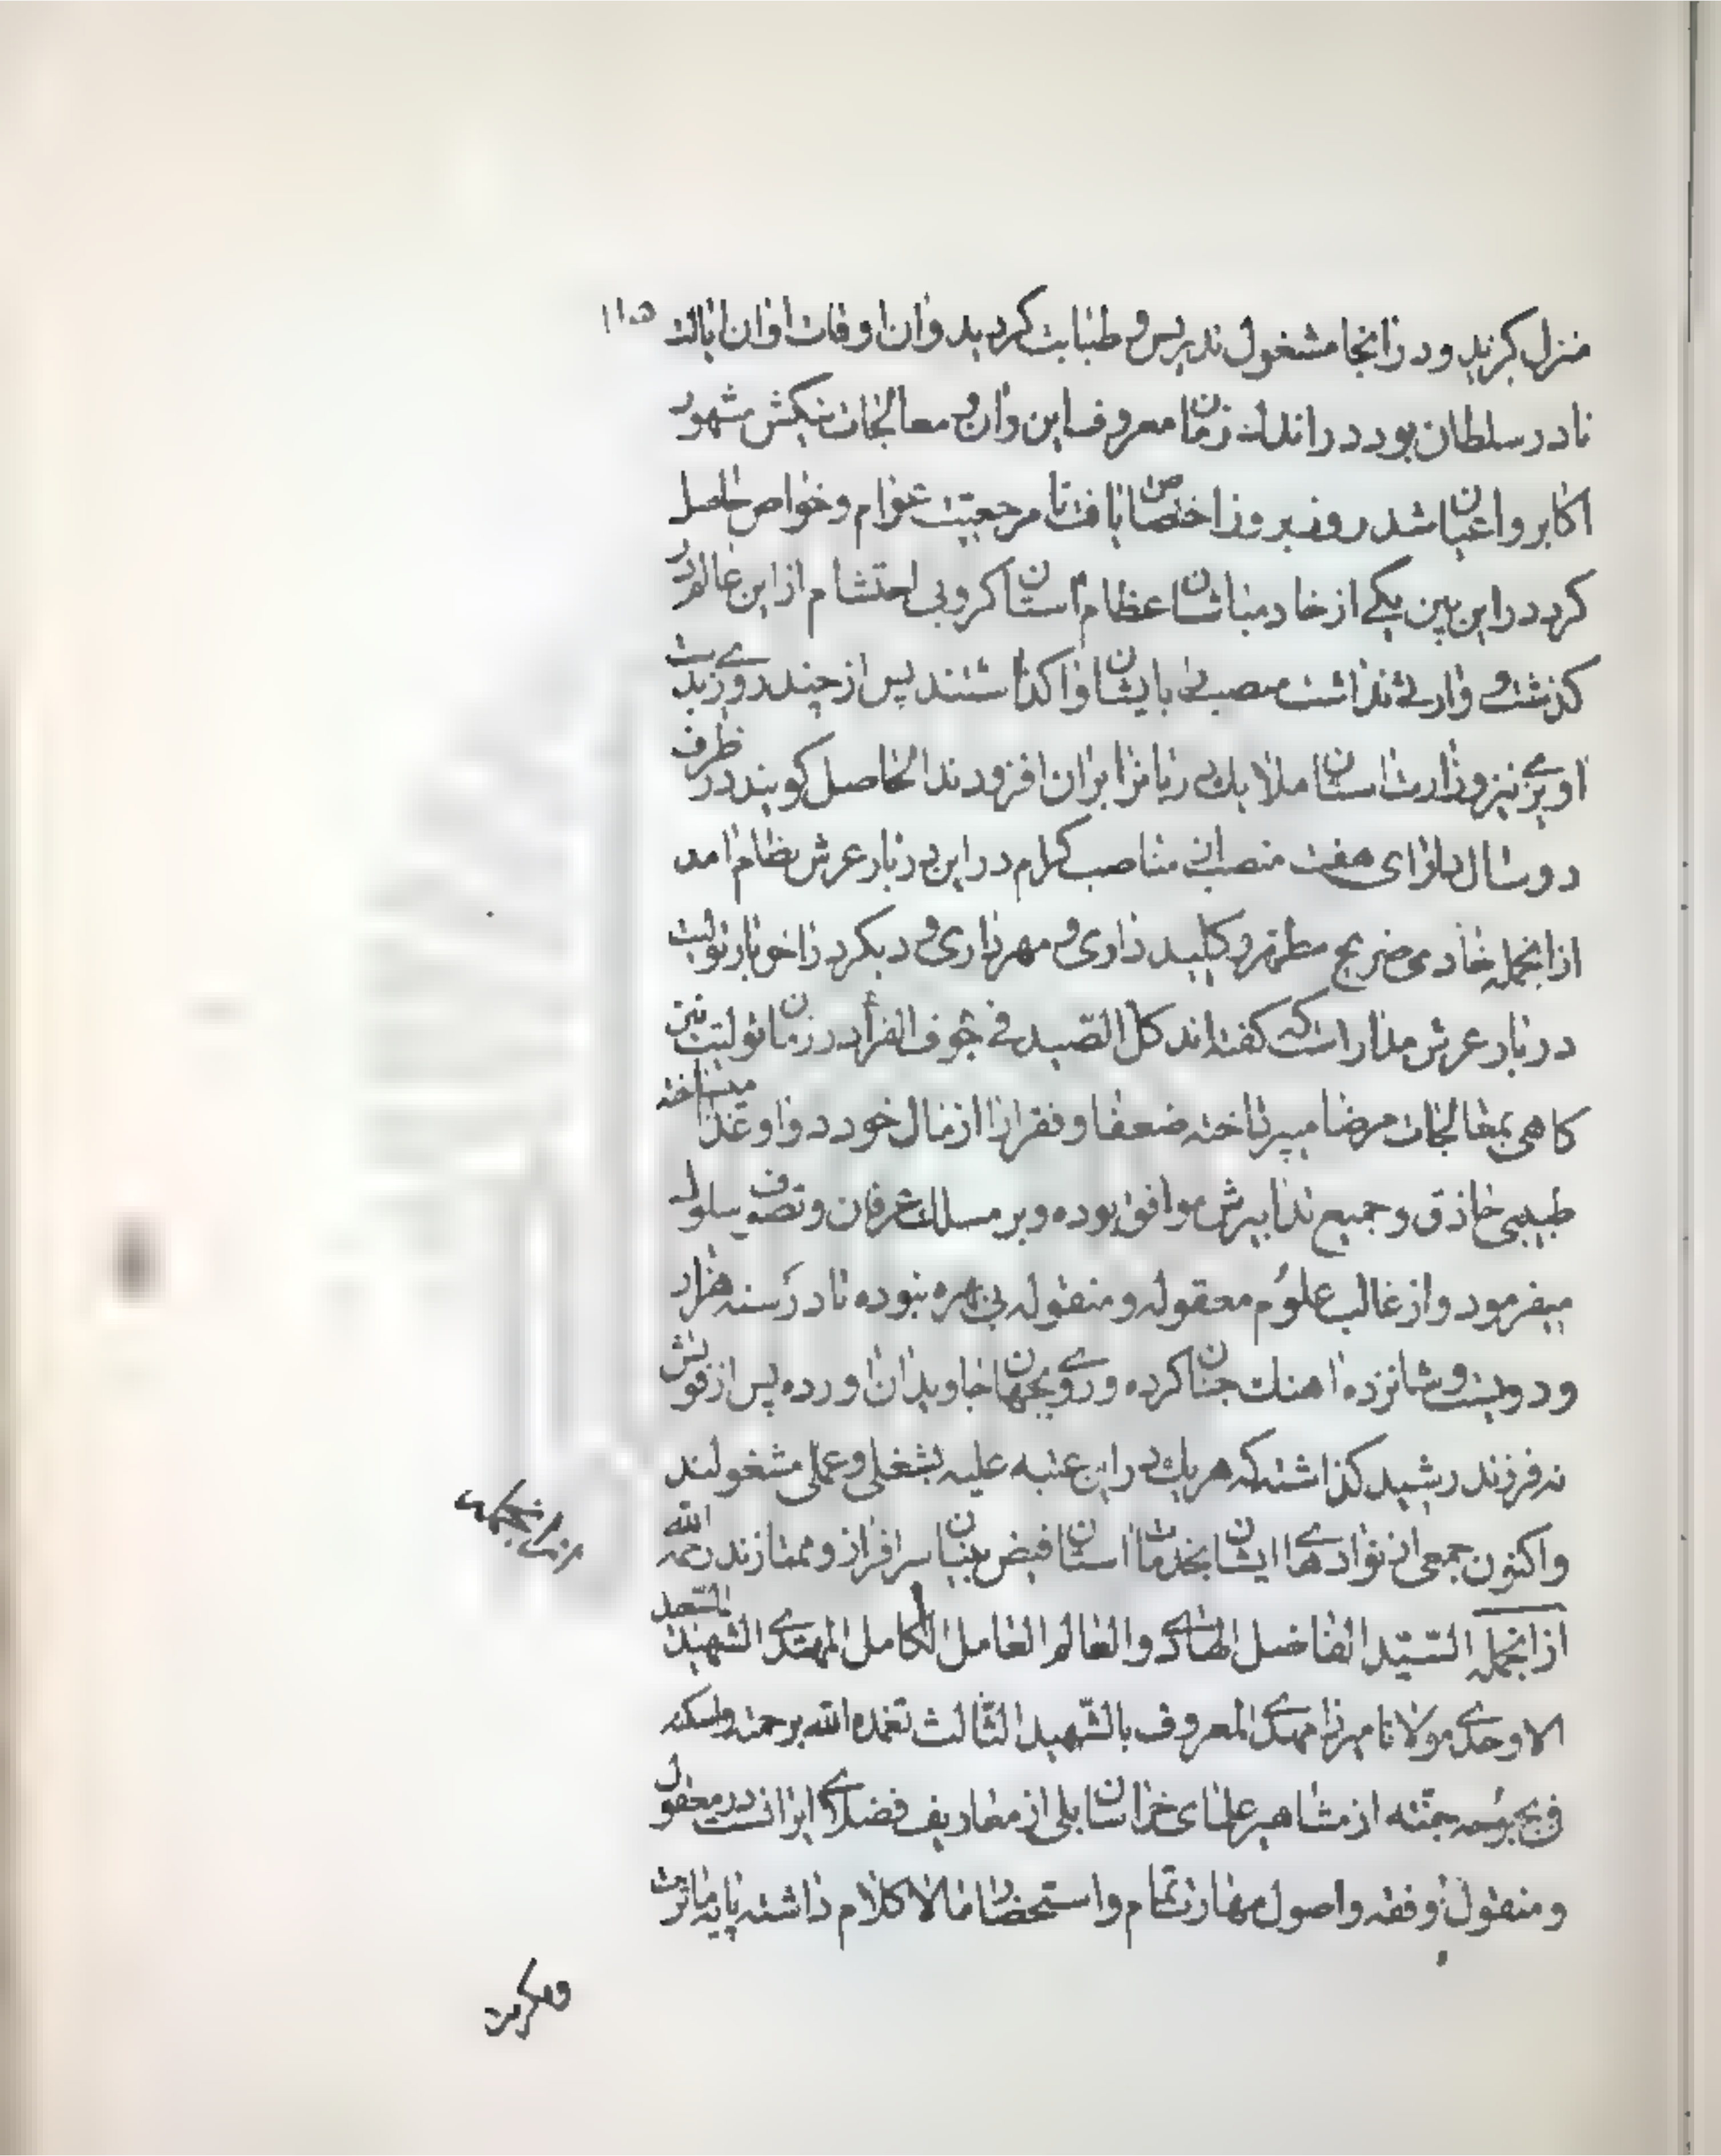 منزل گزید و در آنجا مشغول تدریس و طبابت گردید و آن اوقات اوان ایالت ١١٥
نادر سلطان بود در اندک زمان معروف این و آن و بمعالجات نیکش مشهور
اکابر و اعیان شد روز بروز اختصاص یافت تا مرجعیت عوام و خواص حاصل
کرد در این بین یکی از خادمباشان عظام آستان کروبی احتشام از این عالم در
گذشت و وارثی نداشت منصب با یشان واگذاشتند پس از چند روزی بت
نیز وزارت آستان ملایک دربانرا بر آن افزودند الحاصل گویند در ظرف
دو سال دارای هفت منصب از مناصب کرام در این دربار عرش نظام آمد
از آنجمله خادمی ضریح مطهر و کلیدداری و مهرداری و دیگر در آخر بار تولیت
دربار عرش مدار است که گفته‌اند کل الصید فی جوف الفرأ در زمان تولیت نیز
گاهی بمعالجات مرضا میپرداخته ضعفا و فقرا را از مال خود دوا و غذا میساخته
طبیبی حاذق و جمیع تدابیرش موافق بوده و بر مسلک عرفان و تصوف سلوک
میفرمود و از غالب علوم معقوله و منقوله بی بهره نبوده تا در سنه هزار
و دویست و شانزده آهنگ جنان کرده و روی بجهان جاویدان آورده پس از فوتش
نه فرزند رشید گذاشته که هر یک در این عتبه علیه بشغلی و عملی مشغولند
و اکنون جمعی از نوادهای ایشان بخدمات آستان فیض بنیان سرافراز و ممتازند رحمه الله
میرزا مهدی
از آنجمله السید الفاضل الهادی و العالم العامل الکامل المهتدی الشهید السعید
الاوحدی مولانا میرزا مهدی المعروف بالشهید الثالث تغمده الله برحمته و اسکنه
فی بحبوحة جنته از مشاهیر علمای خراسان بلی از معاریف فضلای ایرانست در معقول
و منقول و فقه و اصول مهارت تمام و استحضار ما لا کلام داشته پایه مآثرت